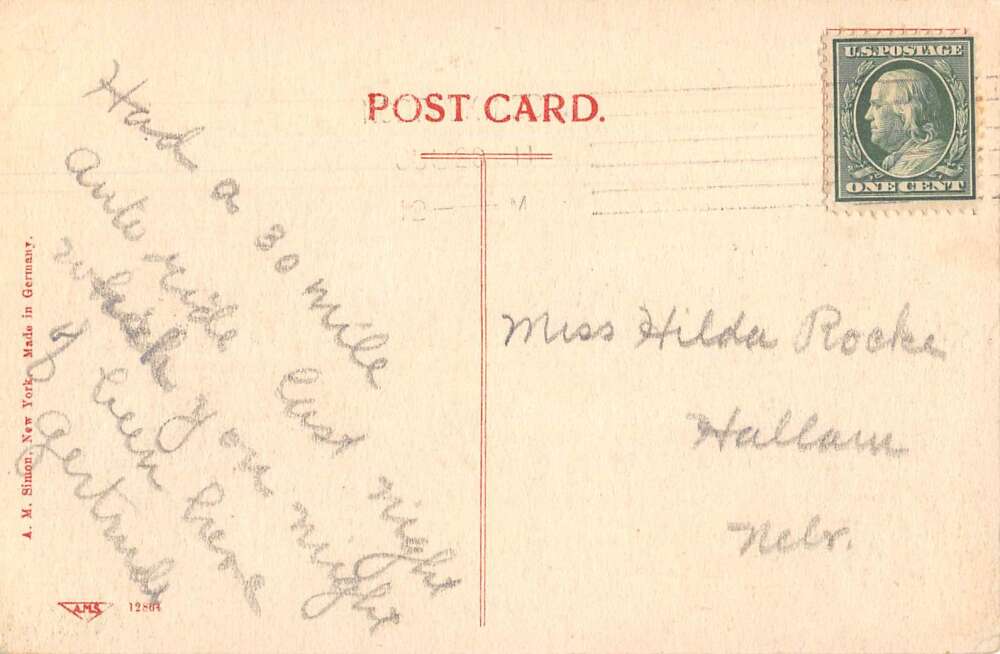 POST CARD.
U.S. POSTAGE
ONE CENT
Had a 30 mile
auto ride last night
you might
of been here
Gertrude
Miss Hilda Rocke
Hallam
Nebr.
A. M. Simon, New York. Made in Germany.
A.M.S.
12864